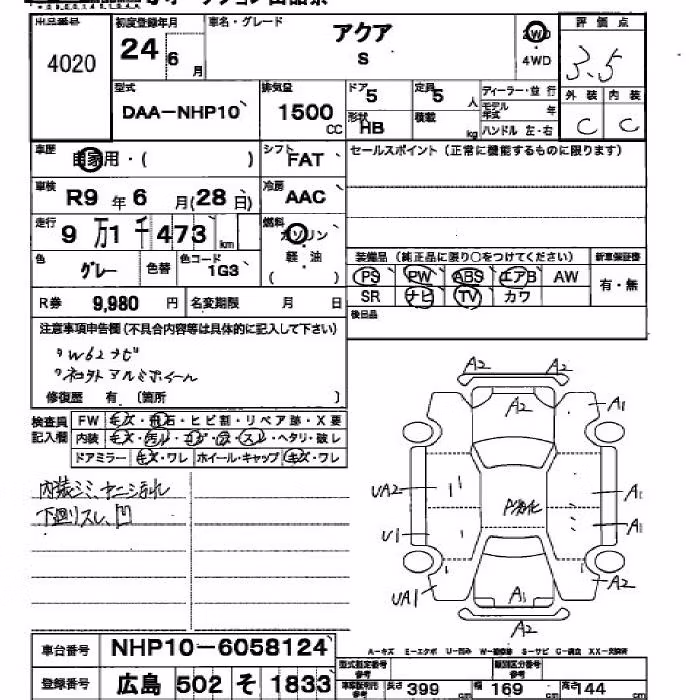 出品番号 初度登録年月 車名・グレード アクア 2WD 評価点
4020 24 年 6 月 S 4WD 3.5
型式 排気量 ドア 5 定員 5 人 ディーラー・並行 外装 内装
DAA-NHP10 1500 CC 形状 HB 積載 kg モデル年式 年 C C
ハンドル 左・右
車歴 自家用・( ) シフト FAT セールスポイント (正常に機能するものに限ります)
車検 R9 年 6 月(28 日) 冷房 AAC
走行 9 万 1 千 473 km 燃料 ガソリン
軽油
( )
装備品 (純正品に限り○をつけてください) 新車保証書
色 グレー 色替 色コード 1G3 PS PW ABS エアB AW 有・無
SR ナビ TV カワ
R券 9,980 円 名変期限 月 日
後日品
注意事項申告欄 (不具合内容等は具体的に記入して下さい)
・W62ナビ
・社外アルミホイール
修復歴 有 (箇所 )
検査員記入欄 FW キズ・飛石・ヒビ割・リペア跡・X要
内装 キズ・汚れ・コゲ・穴・スレ・ヘタリ・破レ
ドアミラー キズ・ワレ ホイール・キャップ キズ・ワレ
下廻りスレ、凹
A2
A2 A1
UA2 A1
U1 A1
UA1 A1 A2
A2
A-キズ E-エクボ U-凹み W-補修跡 S-サビ C-腐食 XX-交換済
車台番号 NHP10-6058124
登録番号 広島 502 そ 1833
型式指定番号 参考 類別区分番号 参考
車検証明市 参考 長さ 399 cm 幅 169 cm 高さ 144 cm